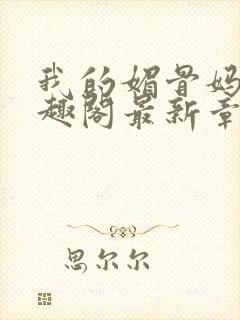 我的媚骨妈
趣阁最新章
思尔尔